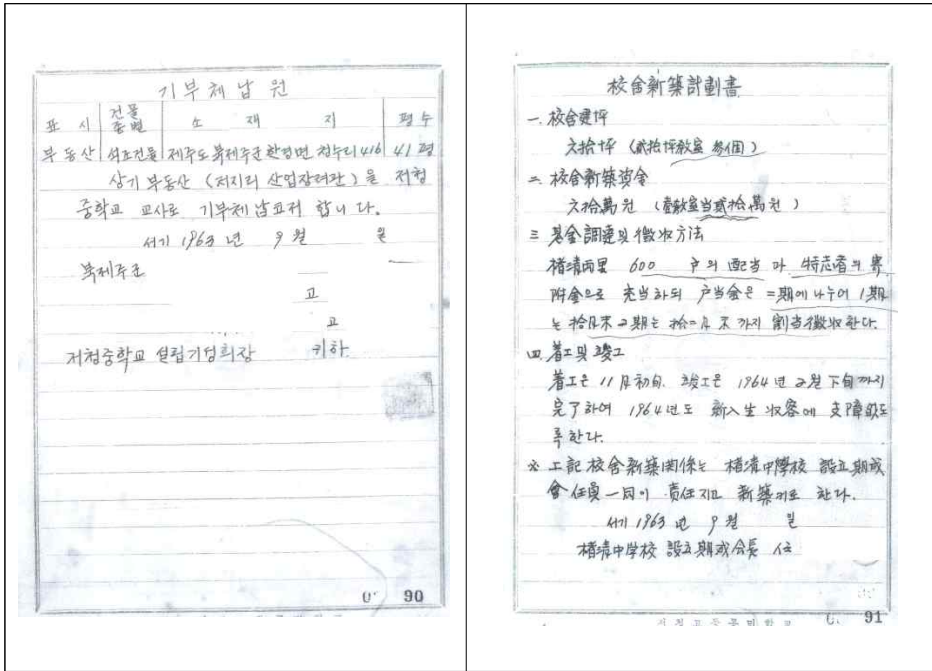 기부체납원
표 시 건물종별 소 재 지 평수
부동산 석조건물 제주도 북제주군 한경면 청수리 416 41평
상기 부동산 (저지리 산업장려관)을 저청
중학교 교사로 기부체납코저 합니다.
서기 1963년 9월 일
북제주군
고
고
저청중학교 설립기성회장 귀하
90
校舍新築計劃書
一. 校舍建坪
六拾坪 (貳拾坪敎室 參個)
二. 校舍新築資金
六拾萬원 (壹敎室当貳拾萬원)
三 基金調達및 徵收方法
楮淸両里 600 戶의 配当과 特志者의 寄
附金으로 充当하되 戶当金은 二期에 나누어 1期
는 拾月末 2期는 拾二月末까지 割当徵收한다.
四. 着工및 竣工
着工은 11月初旬. 竣工은 1964년 2월 下旬까지
完了하여 1964년도 新入生 收容에 支障없도
록 한다.
※ 上記 校舍新築関係는 楮淸中學校 設立期成
會 任員一同이 責任지고 新築키로 한다.
서기 1963년 9월 일
楮淸中学校 設立期成会長
91